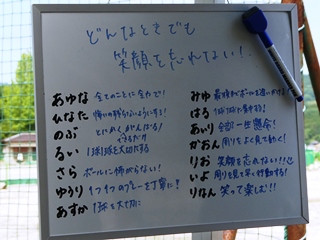 どんなときでも
笑顔を忘れない!!
あゆな 全てのことに全力で!
ひなた 悔いの残らないように!
のぶ とにかくがんばる!
るい 1球1球を大切にする
さら ボールに怖がらない!
ゆうり 1つ1つのプレーを丁寧に!
あすか 1球を大切に
みゆ 最後までボールを追いかける!
はる 1球1球に集中する!
あいり 全部一生懸命!
かおん 周りをよく見て動く!
りお 笑顔を忘れない!!
いよ 周りを見て早く行動する!
りなん 笑って楽しむ!!